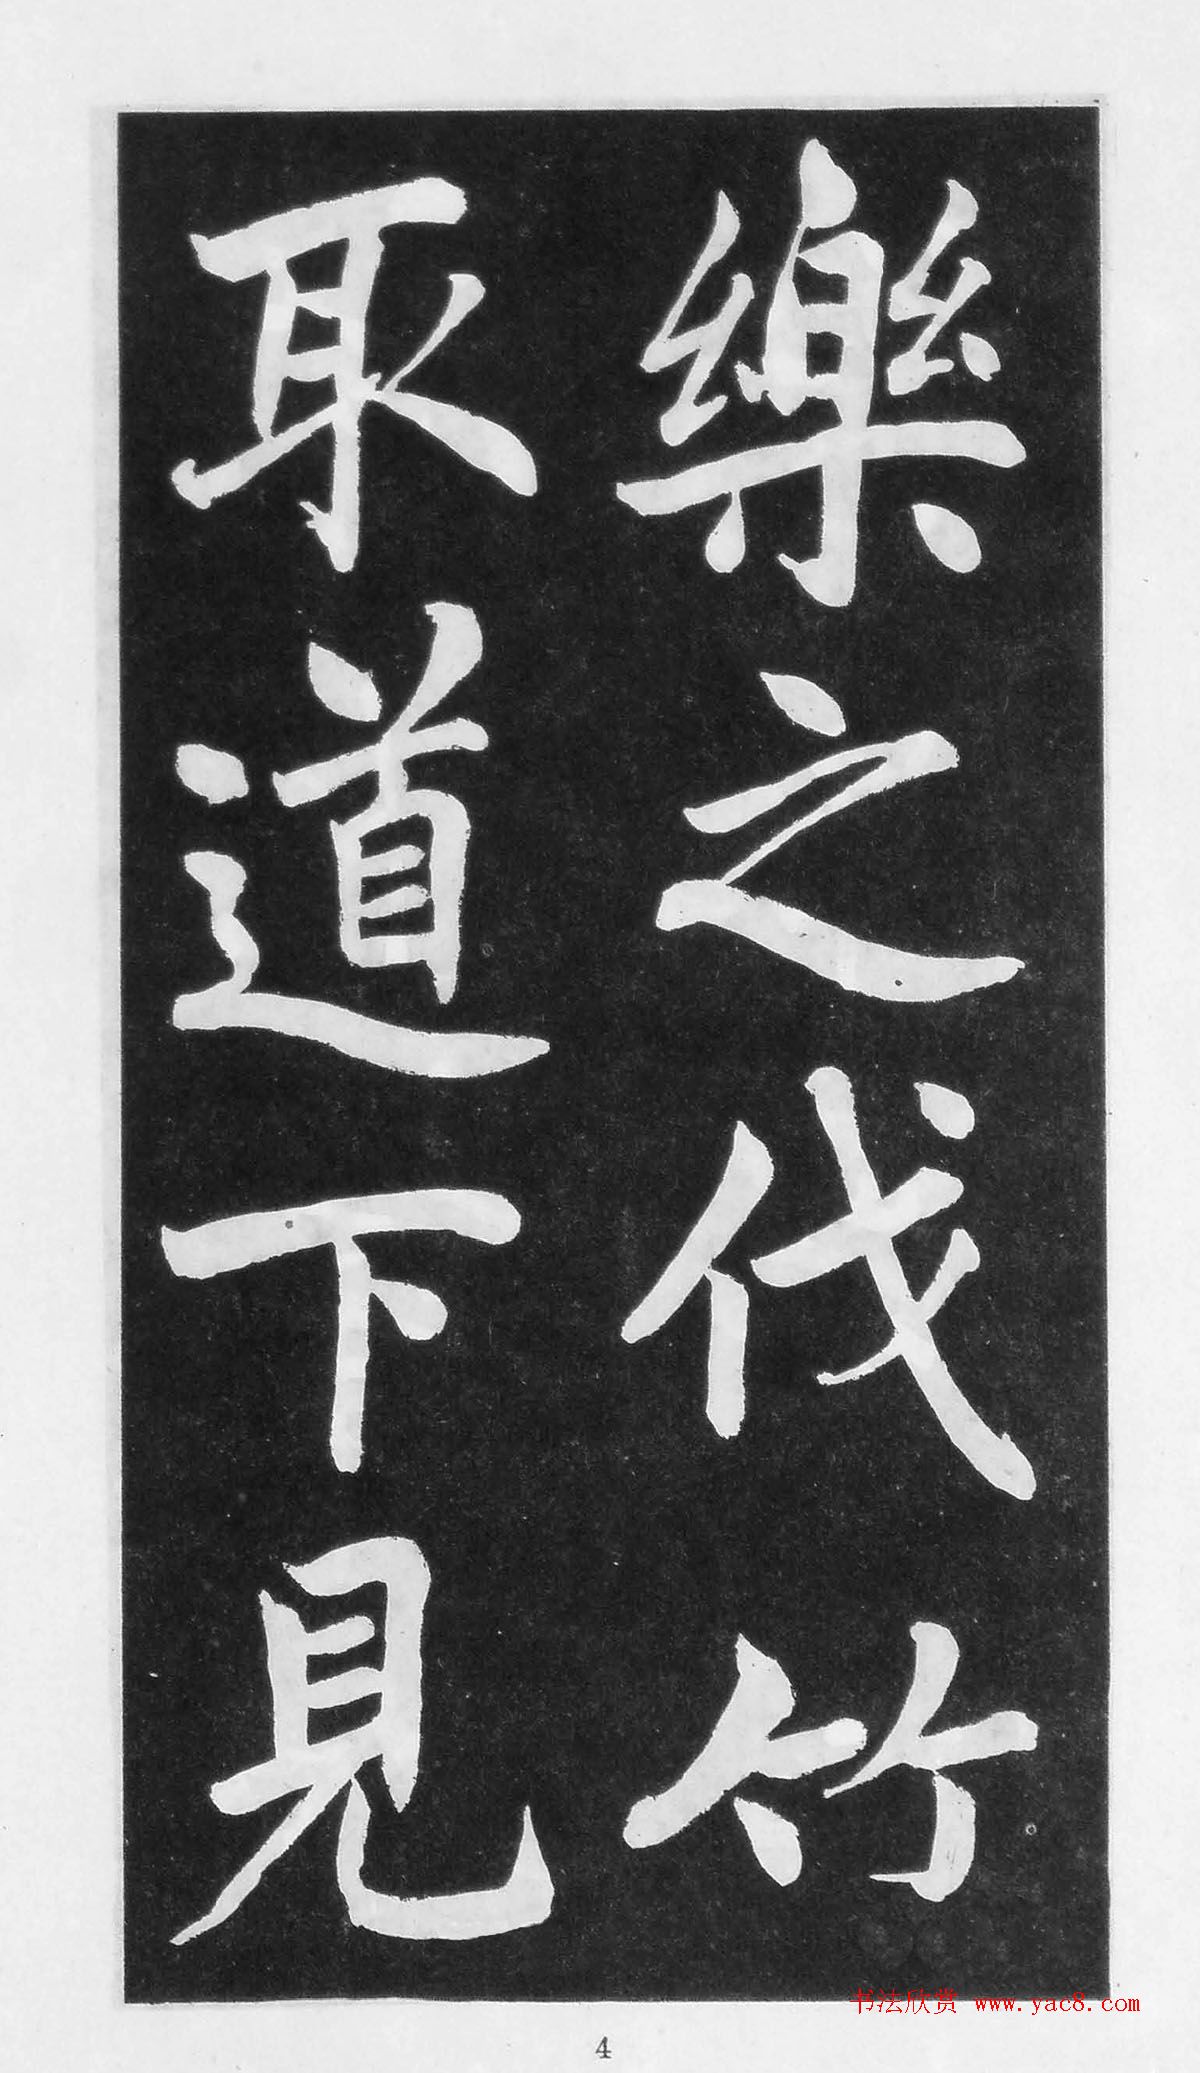 樂之伐竹
取道下見
书法欣赏 www.yac8.com
4